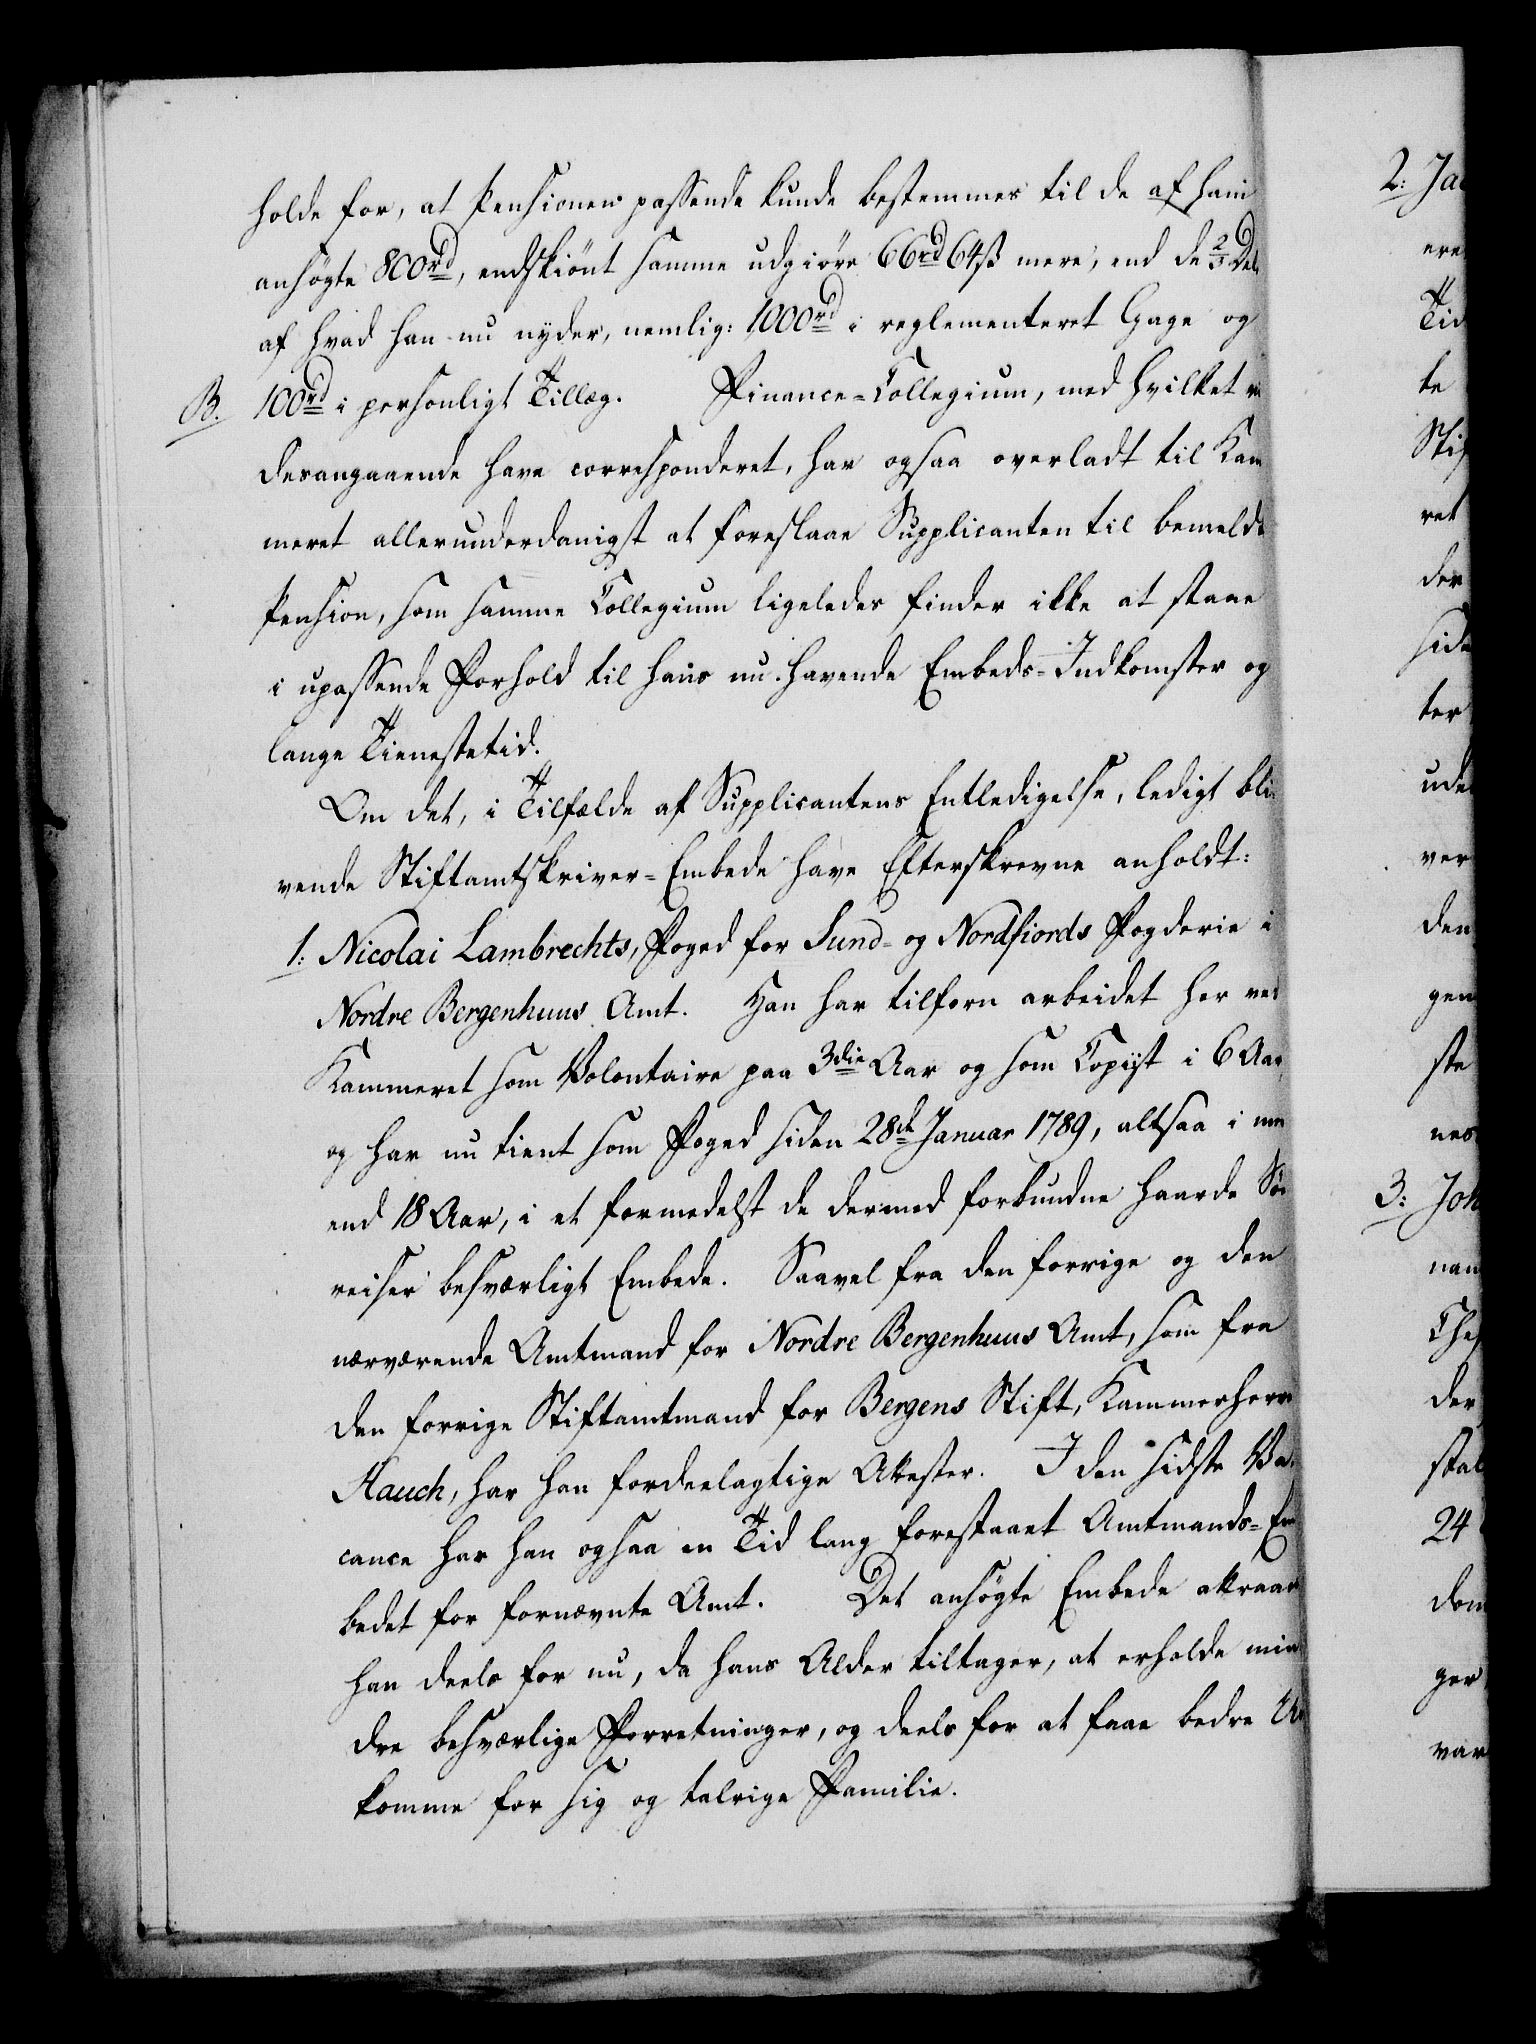 holde for, at Pensionen passende kunde bestemmes til de af ham
ansøgte 800rd, endskiönt samme udgiöre 66rd 64ß mere, end de 2/3 Dele
af hvad han nu nyder, nemlig: 1000rd i reglementeret Gage og
B. 100rd i personligt Tillæg. Finance-Collegium, med hvilket vi
desangaaende have corresponderet, har ogsaa overladt til Kam
meret allerunderdanigst at foreslaae Supplicanten til bemeldte
Pension, som samme Collegium ligeledes finder ikke at staae
i upassende Forhold til hans nu havende Embeds-Indkomster og
lange Tienestetid.
Om det, i Tilfælde af Supplicantens Entledigelse, ledigt bli
vende Stiftamtskriver-Embede have Efterskrevne anholdt:
1: Nicolai Lambrechts, Foged for Sund- og Nordfiords Fogderie i
Nordre Bergenhuus Amt. Han har tilforn arbeidet her ved
Kammeret som Volontaire paa 3die Aar og som Copiist i 6 Aar,
og har nu tient som Foged siden 28de Januar 1789, altsaa i meer
end 18 Aar, i et formedelst de dermed forbundne haarde Söe
reiser besværligt Embede. Saavel fra den forrige og den
nærværende Amtmand for Nordre Bergenhuus Amt, som fra
den forrige Stiftamtmand for Bergens Stift, Kammerherre
Hauch, har han fordeelagtige Attester. I den sidste Va
cance har han ogsaa en Tid lang forestaaet Amtmands-Em
bedet for fornævnte Amt. Det ansøgte Embede attraaer
han deels for nu, da hans Alder tiltager, at erholde min
dre besværlige Forretninger, og deels for at faae bedre Ud
komme for sig og talrige Familie.
2:
ere
Tid
te
Stif
ret
der
side
ter
ude
ver
den
gen
ste
nes
3: Joh
nam
der
24
ger
var